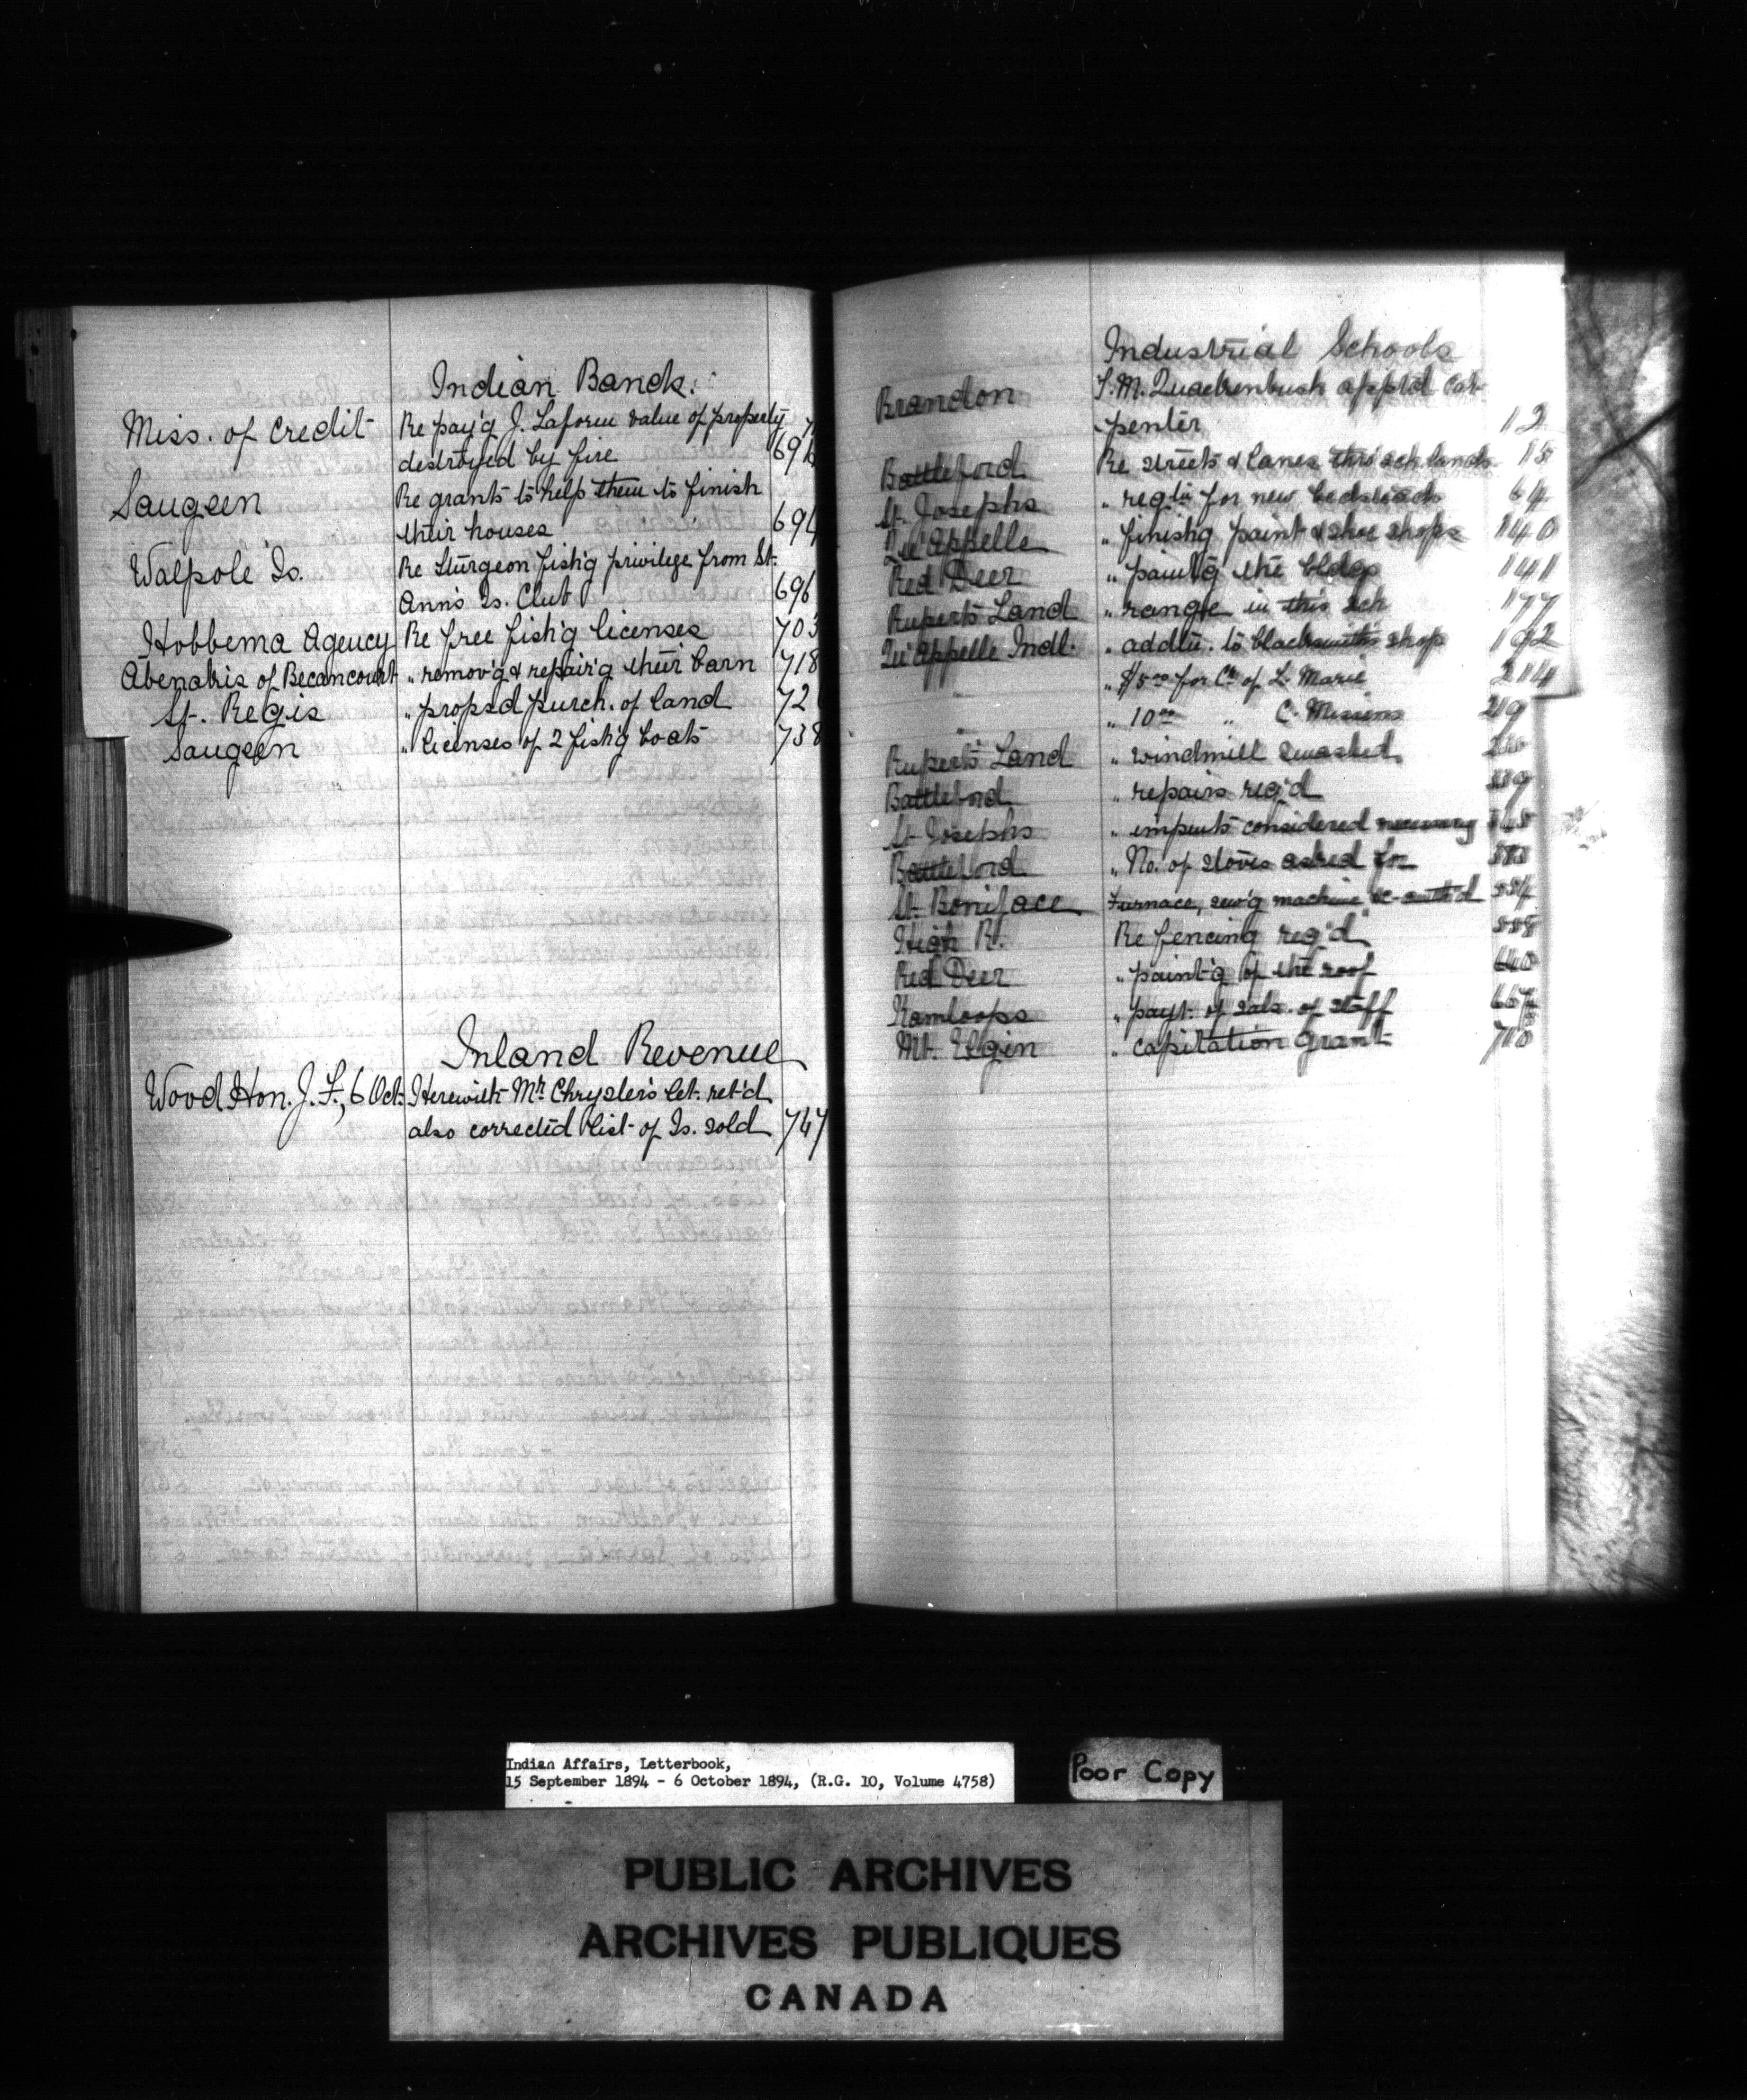 Indian Bands.
Miss. of Credit Re pay'g J. Laform value of property
destroyed by fire 691
Saugeen Re grants to help them to finish
their houses 694
Walpole Is. Re Sturgeon fish'g privilege from St.
Ann's Is. Club 696
Hobbema Agency Re free fish'g licenses 703
Abenakis of Becancourt " remov'g & repair'g their barn 718
St. Regis " propsd purch. of land 72
Saugeen " licenses of 2 fish'g boats 738
Inland Revenue
Wood Hon. J. F., 6 Oct. Herewith Mr Chrysler's let. ret'd
also corrected list of Is. sold 747
Industrial Schools
Brandon F. M. Quackenbush apptd Car-
penter 12
Battleford Re streets & lanes thro' sch. lands 15
St. Josephs " regtn for new bedsteads 64
Qu'Appelle " finish'g paint & shoe shops 140
Red Deer " paint'g the bldgs 141
Ruperts Land " range in this sch 177
Qu'Appelle Indl. " addtn. to blacksmith's shop 192
" $5.00 for Ch of L. Marie 214
" 10.00 " C. Missions 219
Ruperts Land " windmill smashed
Battleford " repairs req'd
St Josephs " impents considered necessary
Battleford " No. of stoves asked for
St. Boniface Furnace, sew'g machine &c auth'd 554
High R. Re fencing req'd 558
Red Deer " paint'g of the roof 640
Kamloops " payt. of sals. of staff 667
Mt. Elgin " capitation grant 718
Indian Affairs, Letterbook,
15 September 1894 - 6 October 1894, (R.G. 10, Volume 4758)
Poor Copy
PUBLIC ARCHIVES
ARCHIVES PUBLIQUES
CANADA